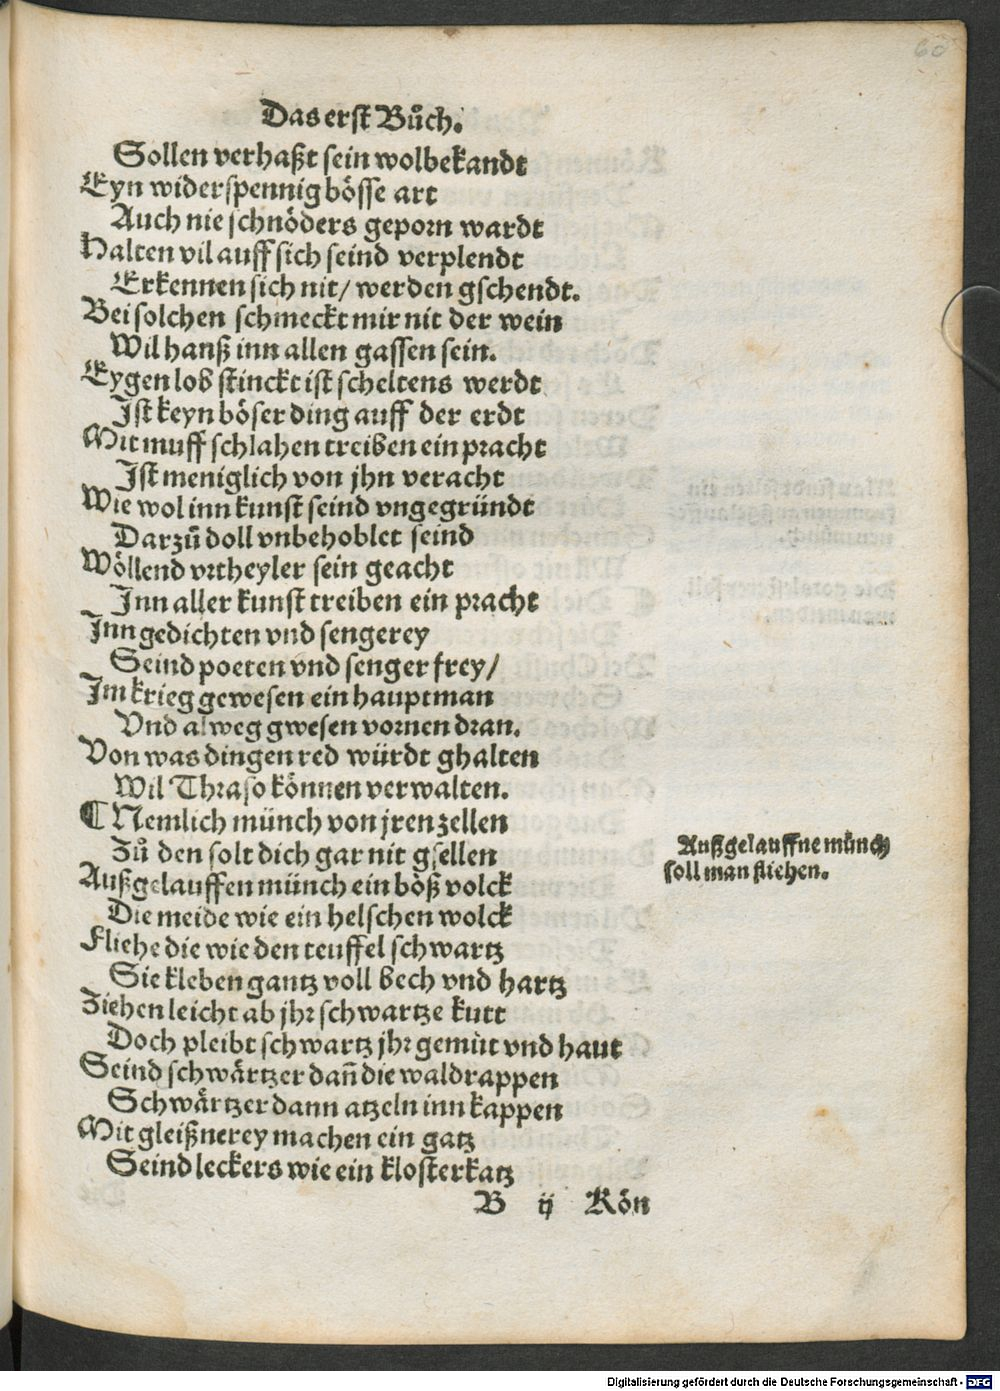 60
Das erst Bůch.
Sollen verhaßt sein wolbekandt
Eyn widerspennig bösse art
Auch nie schnöders geporn wardt
Halten vil auff sich seind verplendt
Erkennen sich nit/ werden gschendt.
Bei solchen schmeckt mir nit der wein
Wil hanß inn allen gassen sein.
Eygen lob stinckt ist scheltens werdt
Ist keyn böser ding auff der erdt
Mit muff schlahen treiben ein pracht
Ist meniglich von jhn veracht
Wie wol inn kunst seind vngegründt
Darzů doll vnbehoblet seind
Wöllend vrtheyler sein geacht
Inn aller kunst treiben ein pracht
Inn gedichten vnd sengerey
Seind poeten vnd senger frey/
Im krieg gewesen ein hauptman
Vnd alweg gwesen vornen dran.
Von was dingen red würdt ghalten
Wil Thraso können verwalten.
¶ Nemlich münch von jren zellen
Zů den solt dich gar nit gsellen
Außgelauffen münch ein böß volck
Die meide wie ein helschen wolck
Fliehe die wie den teuffel schwartz
Sie kleben gantz voll bech vnd hartz
Ziehen leicht ab jhr schwartze kutt
Doch pleibt schwartz jhr gemüt vnd haut
Seind schwärtzer dañ die waldrappen
Schwärtzer dann atzeln inn kappen
Mit gleißnerey machen ein gatz
Seind leckers wie ein klosterkatz
Außgelauffne münch
soll man fliehen.
B ij Kön
Digitalisierung gefördert durch die Deutsche Forschungsgemeinschaft - DFG